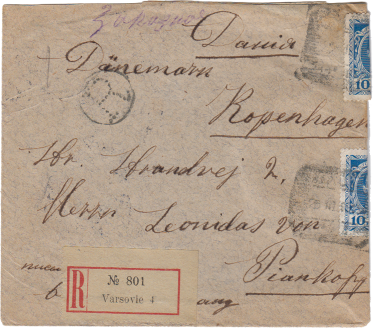 Заказное
Dania
Dänemark
Kopenhagen
10
R
Str. Strandvej 2,
Herrn Leonidas von
10
Piankoff
R
№ 801
Varsovie 4